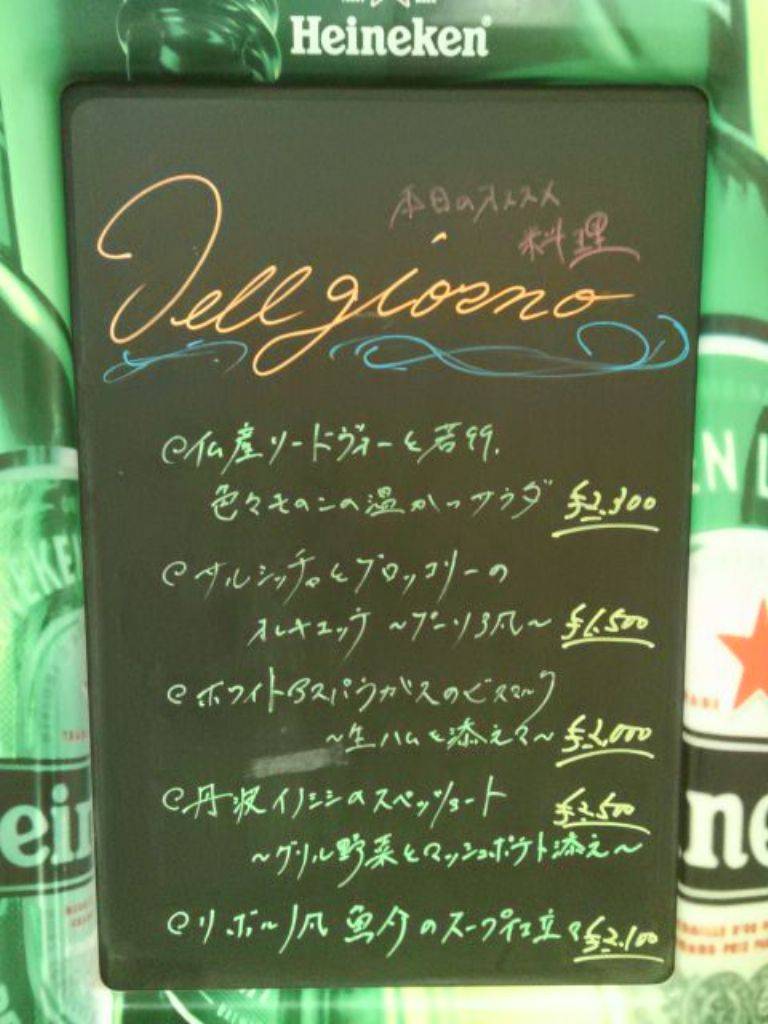 Heineken
本日のオススメ
料理
Dell giorno
仏産リードヴォーと若鶏、
色々キノコの温かいサラダ ¥2,300
サルシッチャとブロッコリーの
オレキエッテ ~プーリア風~ ¥1,500
ホワイトアスパラガスのビスマルク
~生ハムを添えて~ ¥2,000
丹波イノシシのスペッツァート ¥2,500
~グリル野菜とマッシュポテト添え~
リボルノ風 魚介のスープ仕立て ¥2,100
EN L